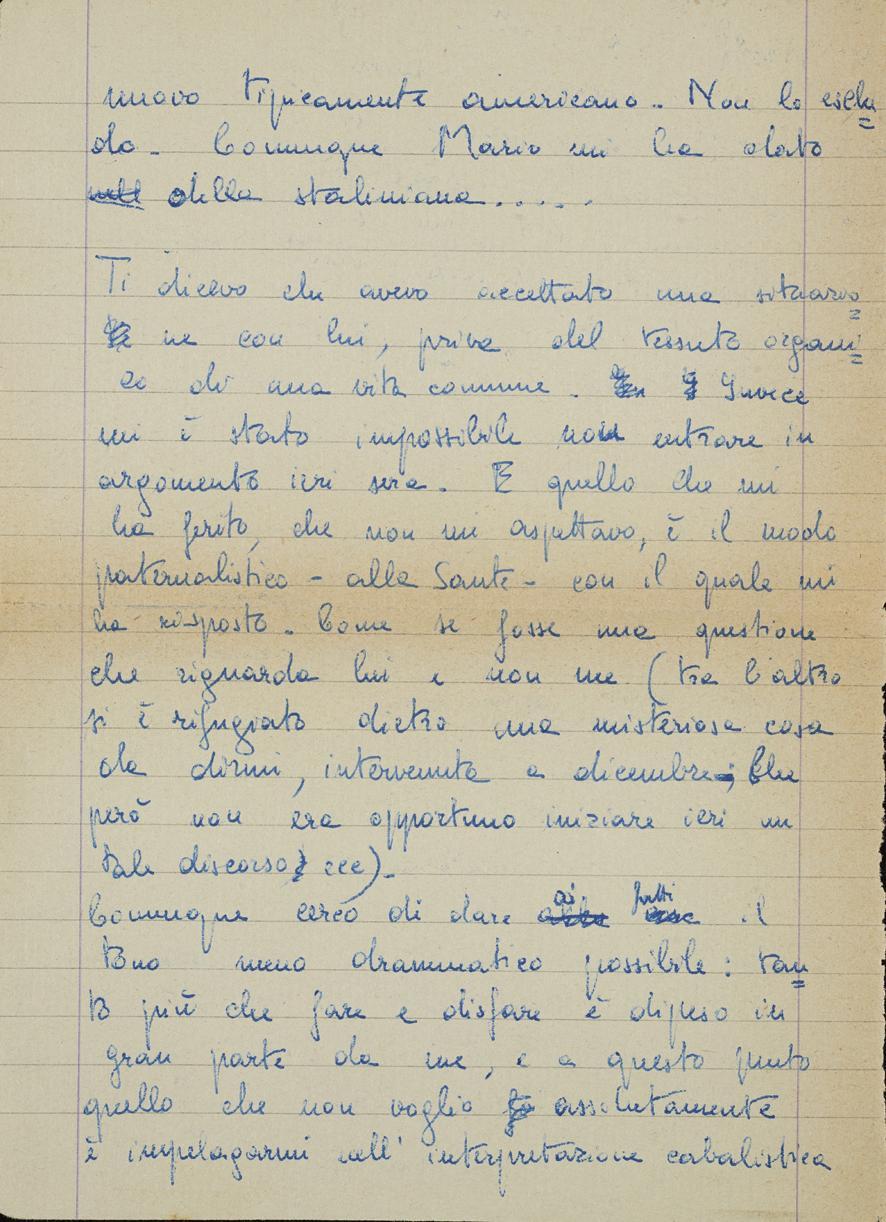 nuovo tipicamente americano. Non lo esclu=
do. Comunque Mario mi ha dato
della staliniana.....
Ti dicevo che avevo accettato una situazio=
ne con lui, priva del tessuto organi=
co di una vita comune. Invece
mi è stato impossibile non entrare in
argomento ieri sera. E quello che mi
ha ferito, che non mi aspettavo, è il modo
paternalistico - alla Sante - con il quale mi
ha risposto. Come se fosse una questione
che riguarda lui e non me (tra l'altro
si è rifugiato dietro una misteriosa cosa
da dirmi, intervenuta a dicembre; che
però non era opportuno iniziare ieri un
tale discorso ecc).
Comunque cerco di dare ai fatti il
tono meno drammatico possibile: tan=
to più che fare e disfare è dipeso in
gran parte da me, e a questo punto
quello che non voglio assolutamente
è impelagarmi nell'interpretazione cabalistica